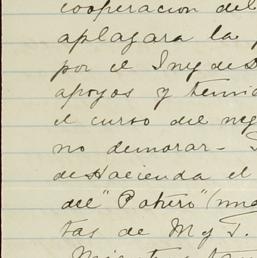 cooperacion del
aplazara la
por el Ing de
apoyos y
el curso del neg
no demorar-
de Hacienda el
del "Potrero" (
tas de M y T.